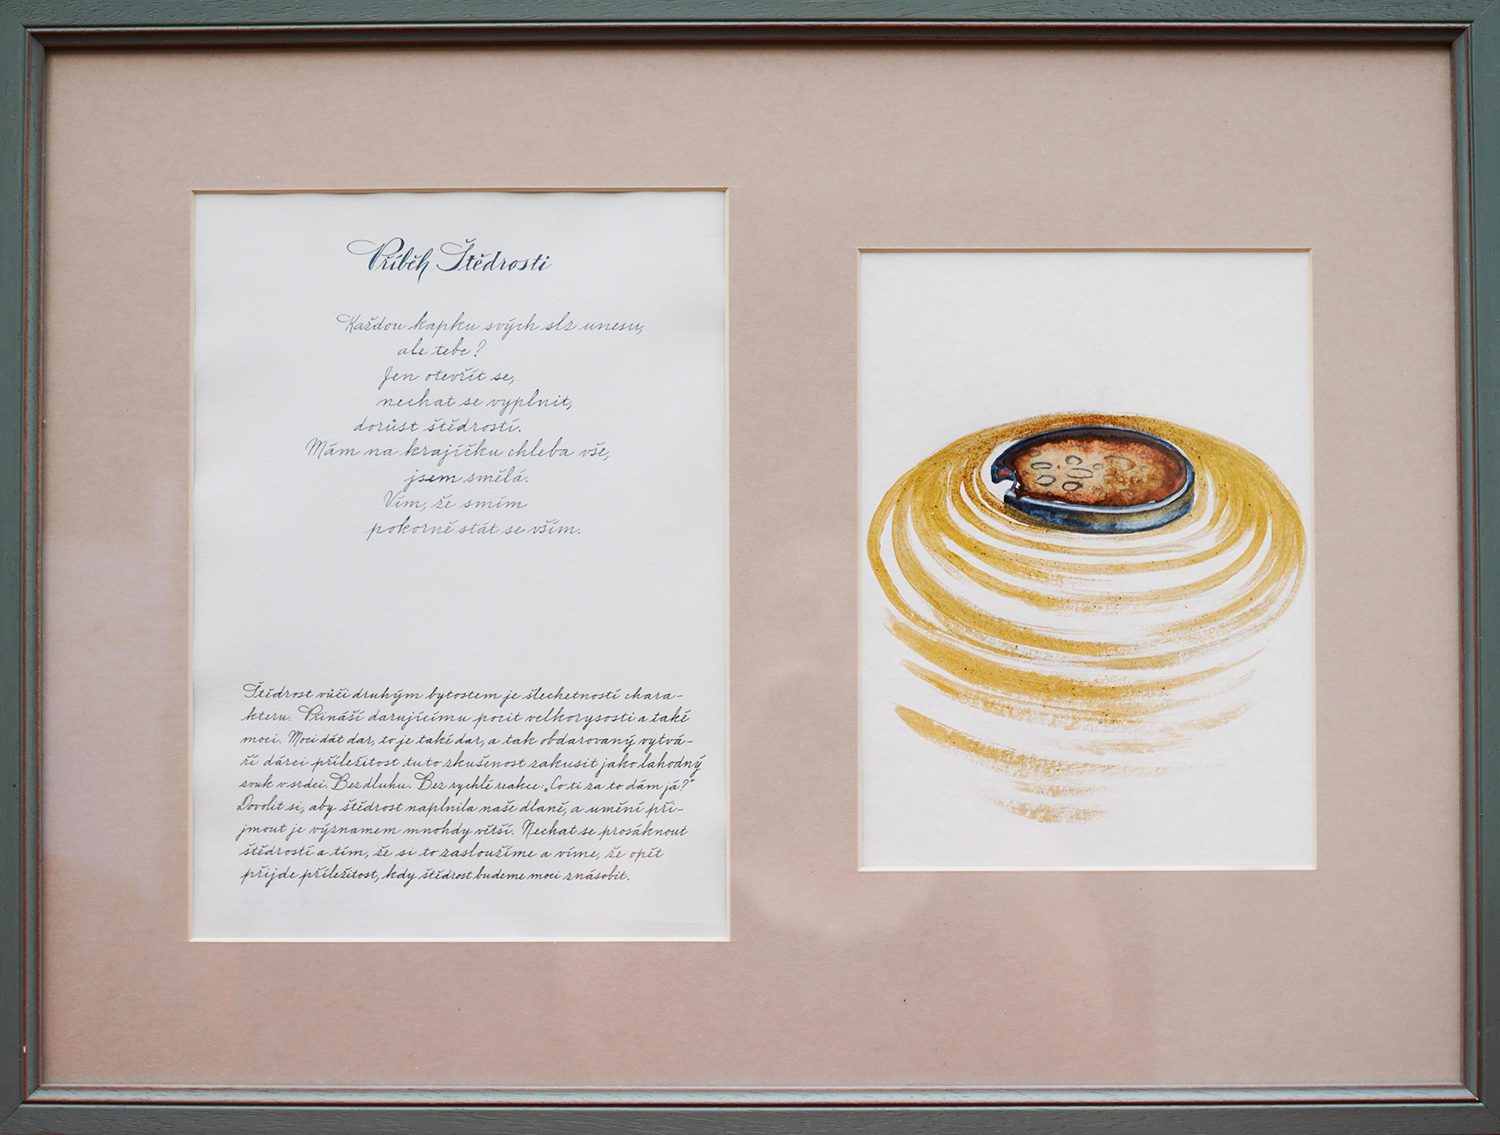 Příběh Štědrosti
Každou kapku svých slz unesu,
ale tebe?
Jen otevřít se,
nechat se vyplnit,
dorůst štědrostí.
Mám na krajíčku chleba vše,
jsem smělá.
Vím, že smím
pokorně stát se vším.
Štědrost vůči druhým bytostem je šlechetností chara-
kteru. Přináší darujícímu pocit velkorysosti a také
moci. Moci dát dar, to je také dar, a tak obdarovaný vytvá-
ří dárci příležitost tuto zkušenost zakusit jako lahodný
zvuk v srdci. Bez dluhu. Bez rychlé reakce „Co ti za to dám já?"
Dovolit si, aby štědrost naplnila naše dlaně, a umění při-
jmout je významem mnohdy větší. Nechat se prosáknout
štědrostí a tím, že si to zasloužíme a víme, že opět
přijde příležitost, kdy štědrost budeme moci znásobit.